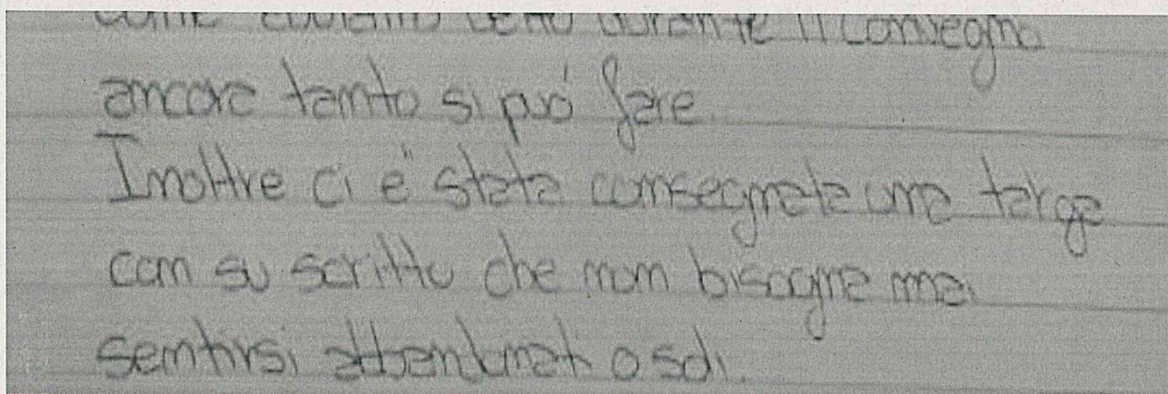 come abbiamo detto durante il convegno
ancora tanto si può fare.
Inoltre ci è stata consegnata una targa
con su scritto che non bisogna mai
sentirsi abbandonati o soli.